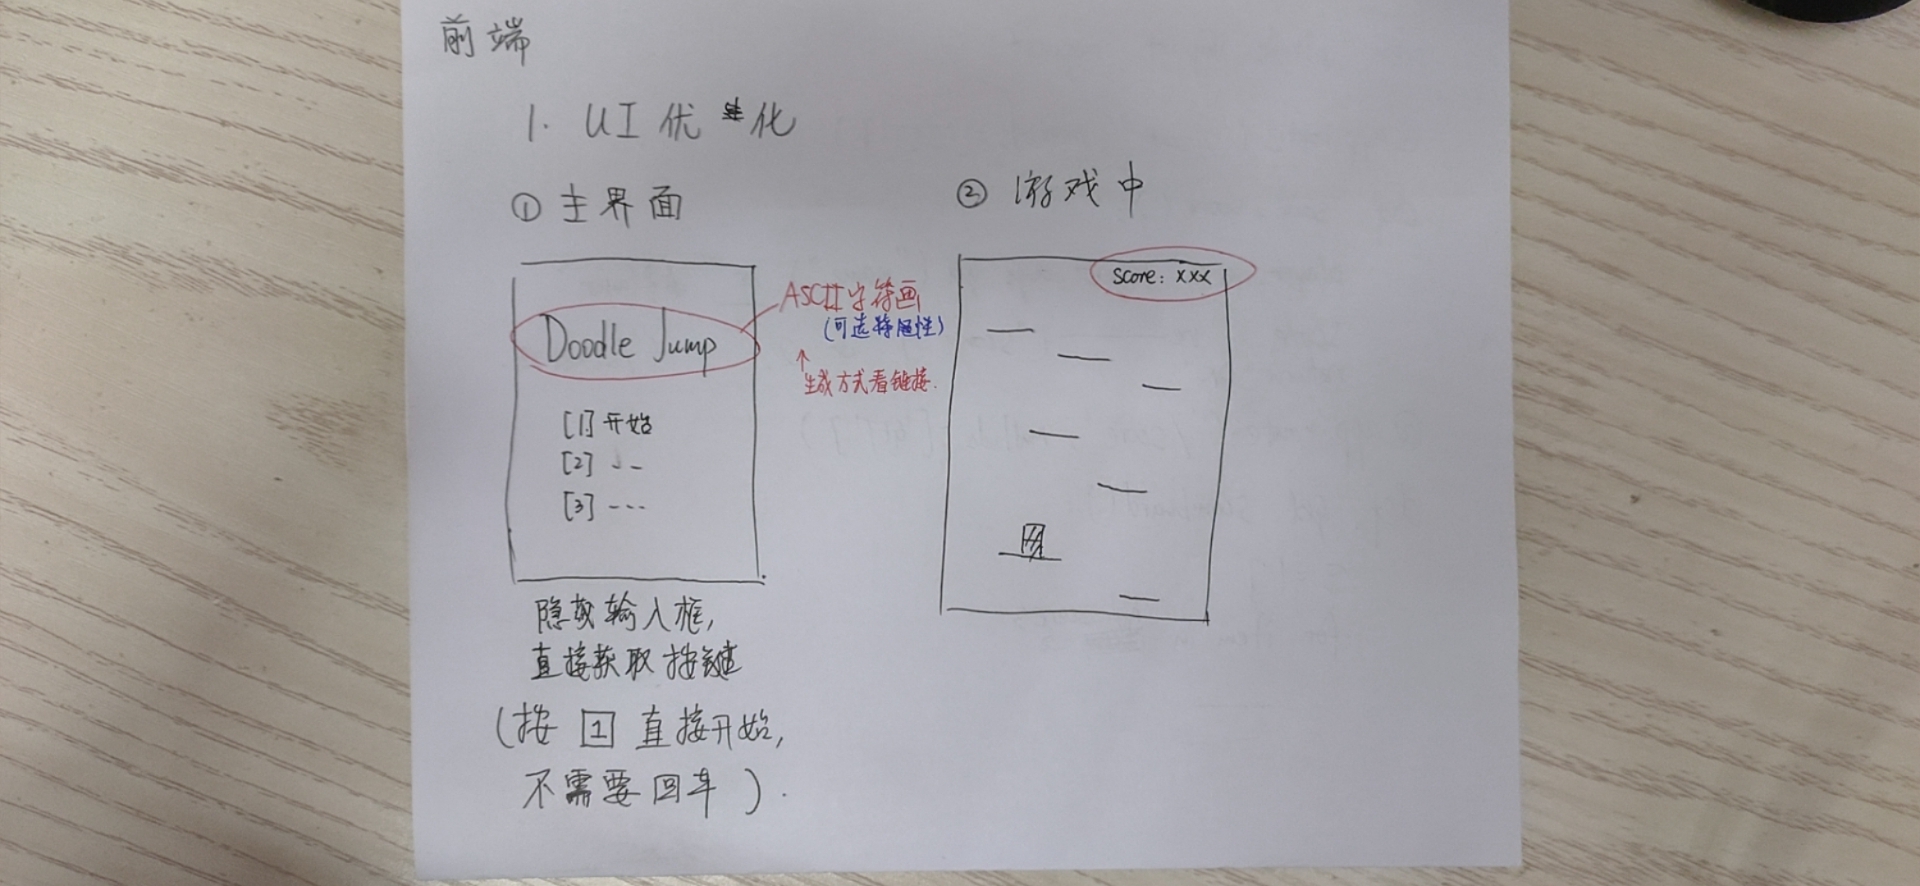 前端
1. UI 优化
① 主界面
Doodle Jump
ASCII字符画
(可选择属性)
↑
生成方式看链接.
[1] 开始
[2] ---
[3] ---
隐藏输入框,
直接获取按键
(按 1 直接开始,
不需要回车).
② 游戏中
score: xxx